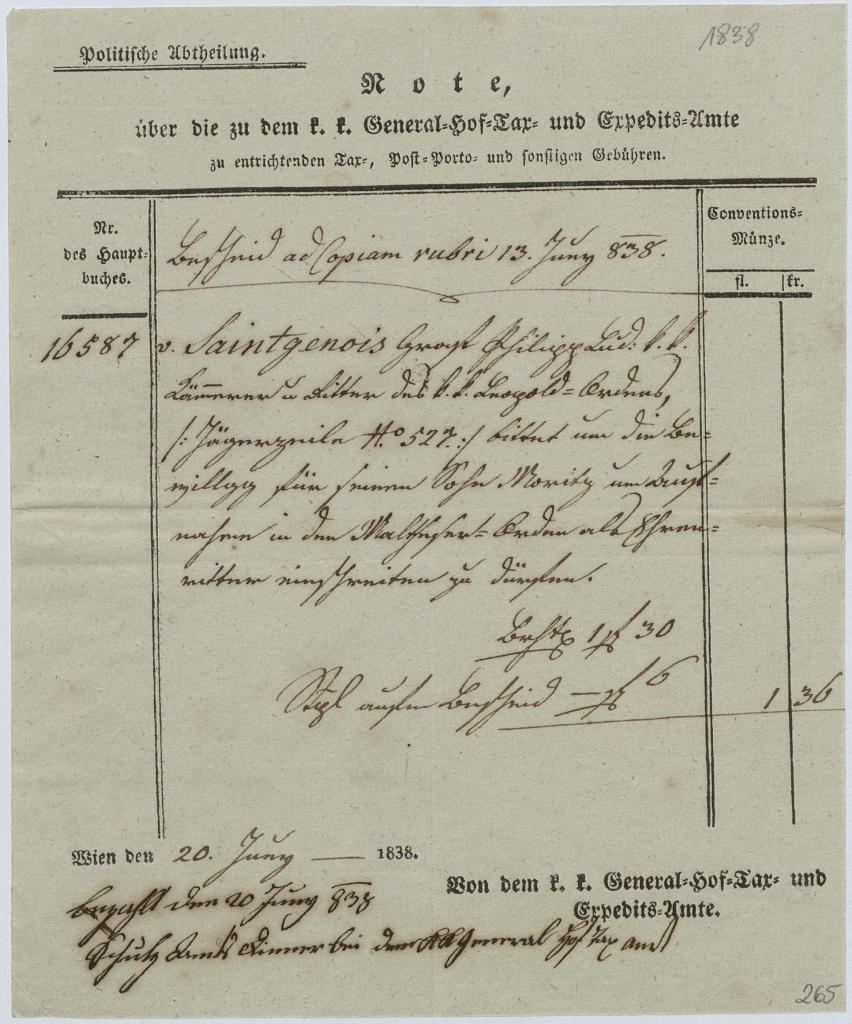 1838
Politische Abtheilung.
Note,
über die zu dem k. k. General-Hof-Tax- und Expedits-Amte
zu entrichtenden Tax-, Post-Porto- und sonstigen Gebühren.
Nr.
des Haupt-
buches.
Conventions-
Münze.
fl. kr.
Bescheid ad Copiam rubri 13. Juny 838.
16587 v. Saintgenois Graf Philipp Lud: k. k.
Kämerer u Ritter des k. k. Leopold-Ordens,
/: Jägerzeile No 527 :/ bittet um die Be-
willgg für seinen Sohn Moritz um Auf-
nahme in den Malthefer-Orden als Ehren-
ritter einschreiten zu dürfen.
1 f 30
Stpl auf den Bescheid — f 6
1 36
Wien den 20. Juny — 1838.
Von dem k. k. General-Hof-Tax- und
Expedits-Amte.
bezahlt den 20 Juny 838
Schulz Amts Diener bei dem KK General Hof Tax amt
265